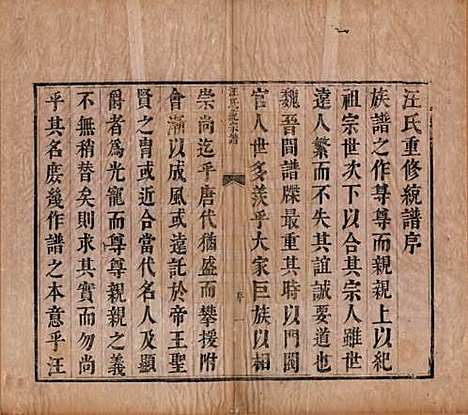 汪氏重修統譜序
族譜之作尊尊而親親上以紀
祖宗世次下以合其宗人雖世
遠人繁而不失其誼誠要道也
魏晉間譜牒最重其時以門閥
官人世多羨乎大家巨族以相
崇尚迄乎唐代猶盛而攀援附
會漸以成風或遠託於帝王聖
賢之胄或近合當代名人及顯
爵者為光寵而尊尊親親之義
不無稍替矣則求其實而勿尚
乎其名庶幾作譜之本意乎汪
序
一